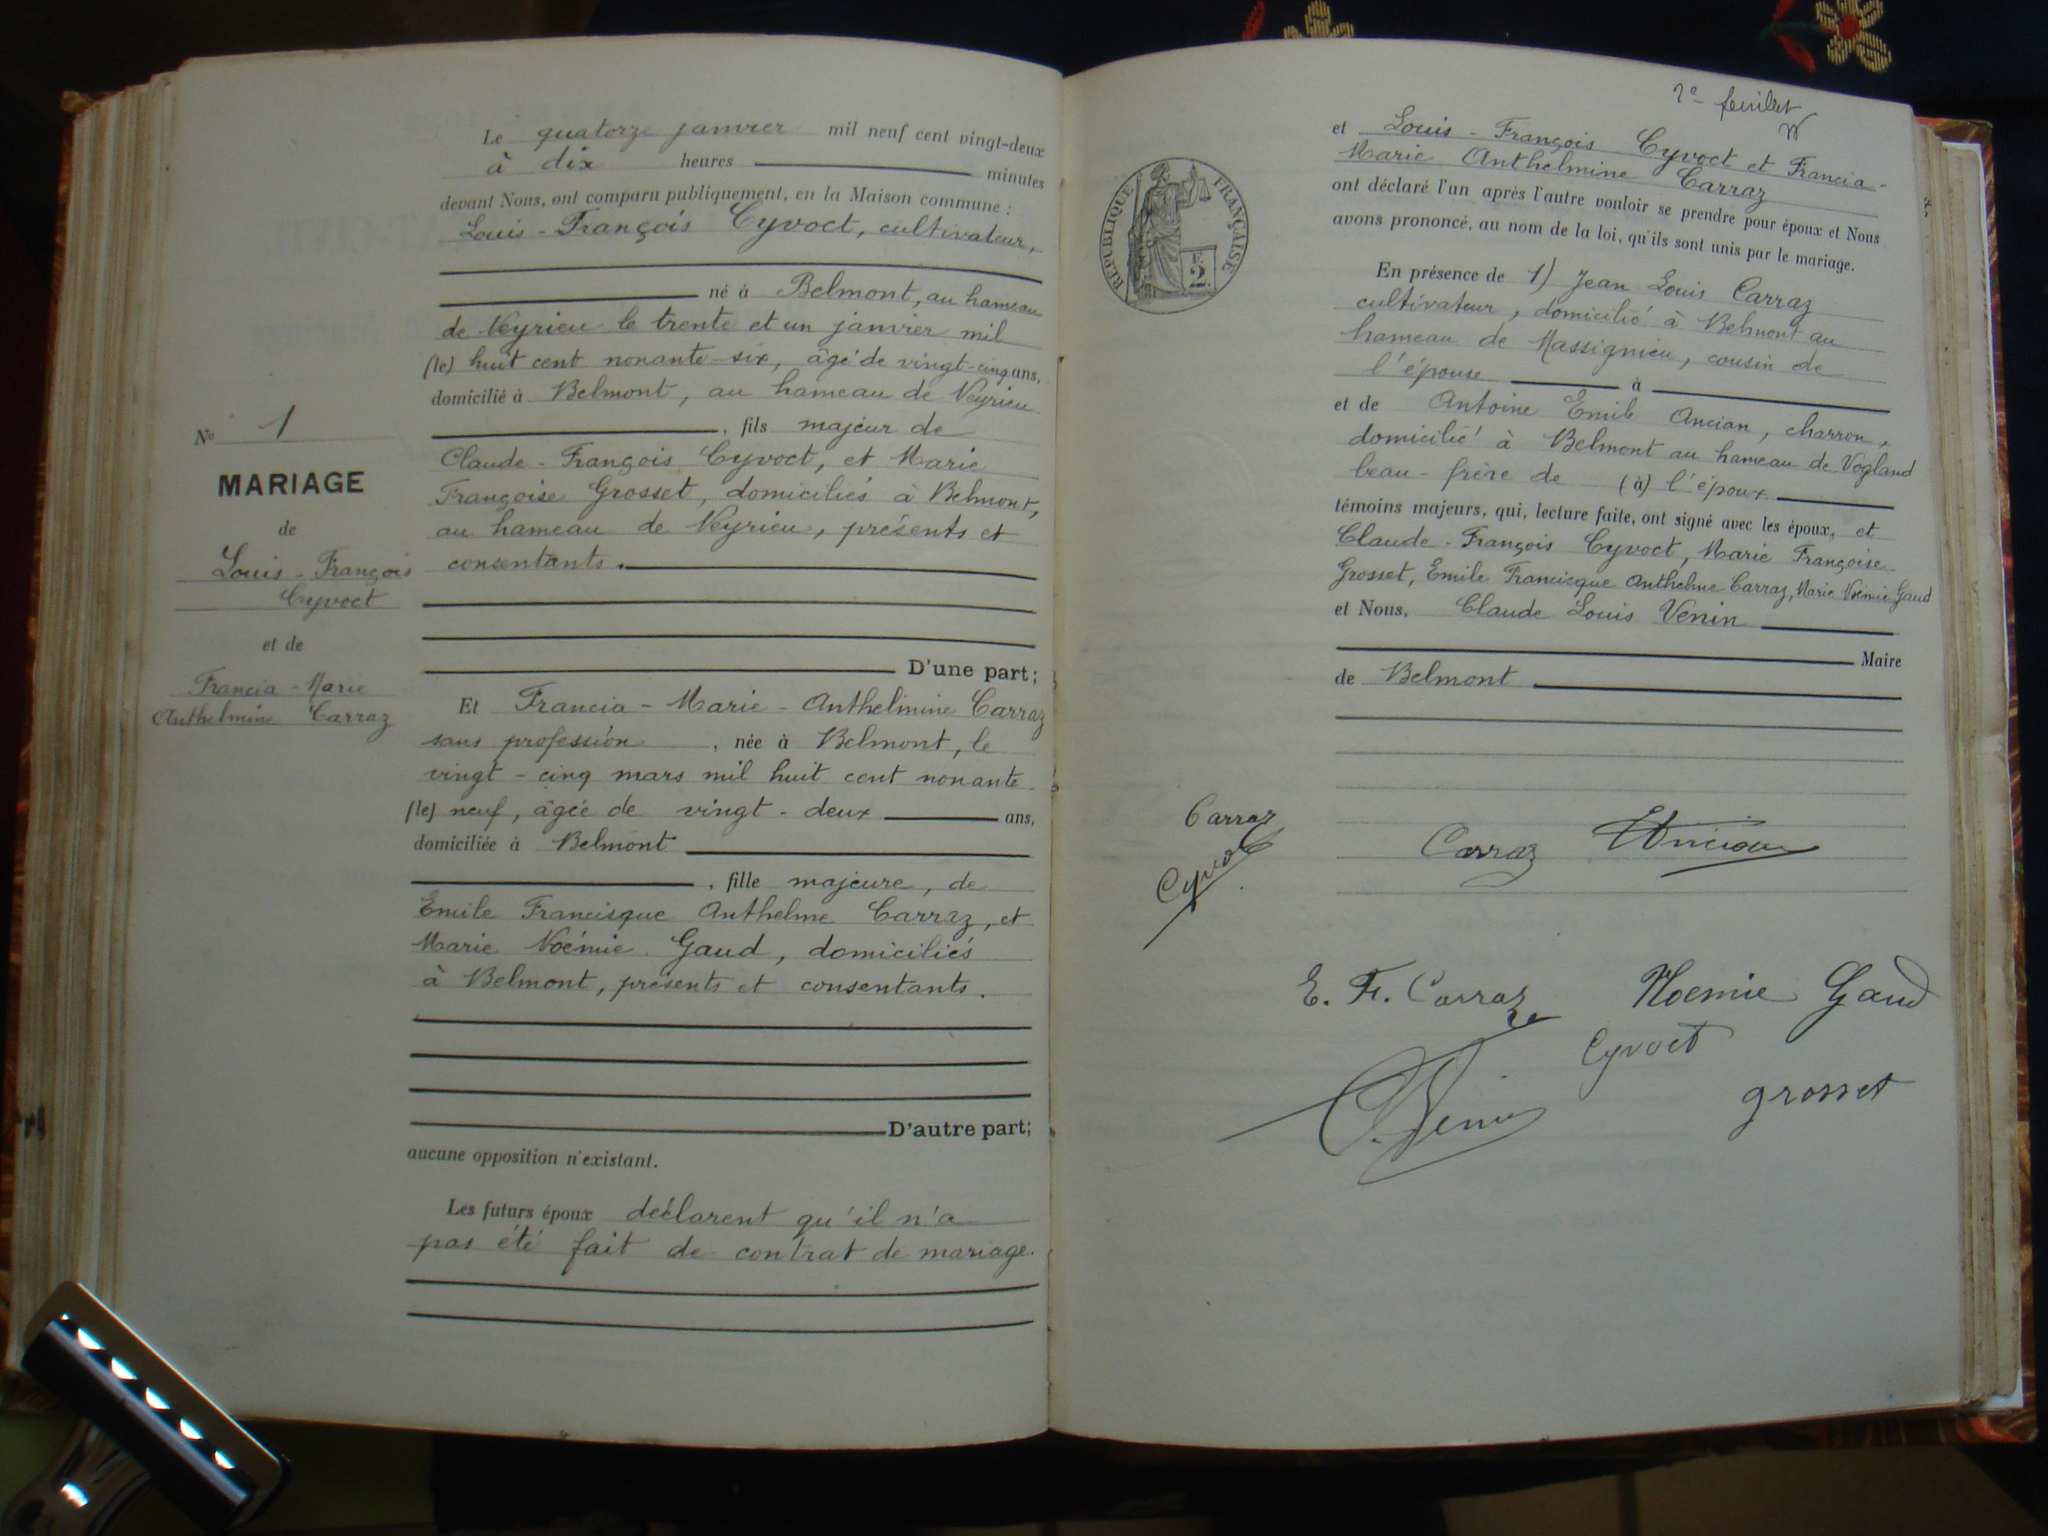 Le quatorze janvier mil neuf cent vingt-deux
à dix heures minutes
devant Nous, ont comparu publiquement, en la Maison commune :
Louis-François Cyvoct, cultivateur,
né à Belmont, au hameau
de Veyrieu le trente et un janvier mil
(le) huit cent nonante-six, âgé de vingt-cinq ans,
domicilié à Belmont, au hameau de Veyrieu
, fils majeur de
Claude-François Cyvoct, et Marie
Françoise Grosset, domiciliés à Belmont,
au hameau de Veyrieu, présents et
consentants.
D'une part;
Et Francia-Marie-Anthelmine Carraz
sans profession, née à Belmont, le
vingt-cinq mars mil huit cent nonante
(le) neuf, âgée de vingt-deux ans,
domiciliée à Belmont
, fille majeure, de
Emile Francisque Anthelme Carraz, et
Marie Noémie Gaud, domiciliés
à Belmont, présents et consentants.
D'autre part;
aucune opposition n'existant.
Les futurs époux déclarent qu'il n'a
pas été fait de contrat de mariage.
No 1
MARIAGE
de
Louis-François
Cyvoct
et de
Francia-Marie
Anthelmine Carraz
2e feuillet
RÉPUBLIQUE FRANÇAISE
F.
2.
et Louis-François Cyvoct et Francia-
Marie Anthelmine Carraz
ont déclaré l'un après l'autre vouloir se prendre pour époux et Nous
avons prononcé, au nom de la loi, qu'ils sont unis par le mariage.
En présence de 1) Jean Louis Carraz
cultivateur, domicilié à Belmont au
hameau de Massignieu, cousin de
l'épouse à
et de Antoine Emile Ancian, charron,
domicilié à Belmont au hameau de Vogland
beau-frère de (à) l'époux
témoins majeurs, qui, lecture faite, ont signé avec les époux, et
Claude-François Cyvoct, Marie Françoise
Grosset, Emile Francisque Anthelme Carraz, Marie Noémie Gaud
et Nous, Claude Louis Venin
Maire
de Belmont
Carraz
Cyvoct
Carraz Ancian
E. F. Carraz Noemie Gaud
Cyvoct
grosset
C. Venin